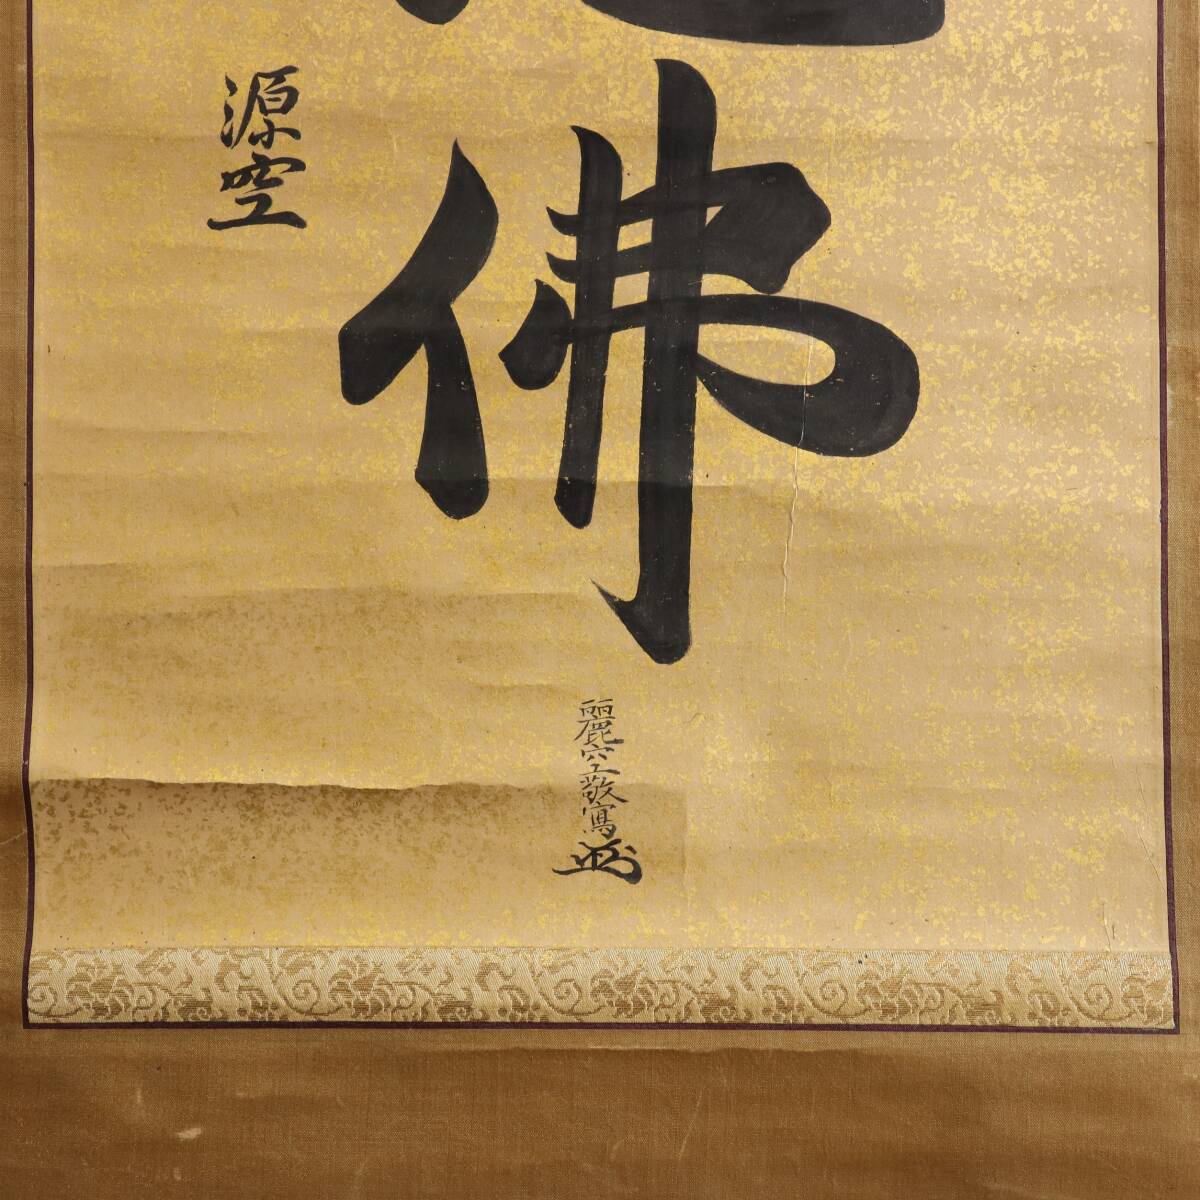 佛
源空
麗空敬寫